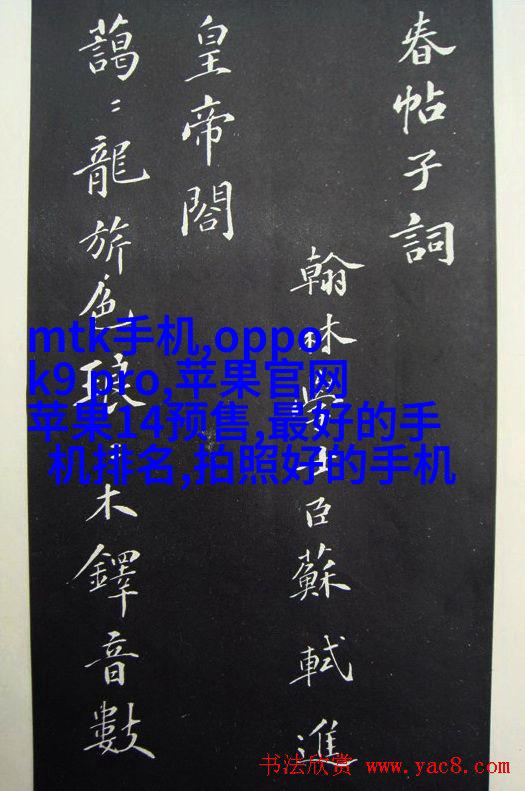 春帖子詞
翰林學士臣蘇軾進
皇帝閣
藹〻龍旂色琅〻木鐸音數
mtk手机,oppo
k9 pro,苹果官网
苹果14预售,最好的手
机排名,拍照好的手机
书法欣赏 www.yac8.com